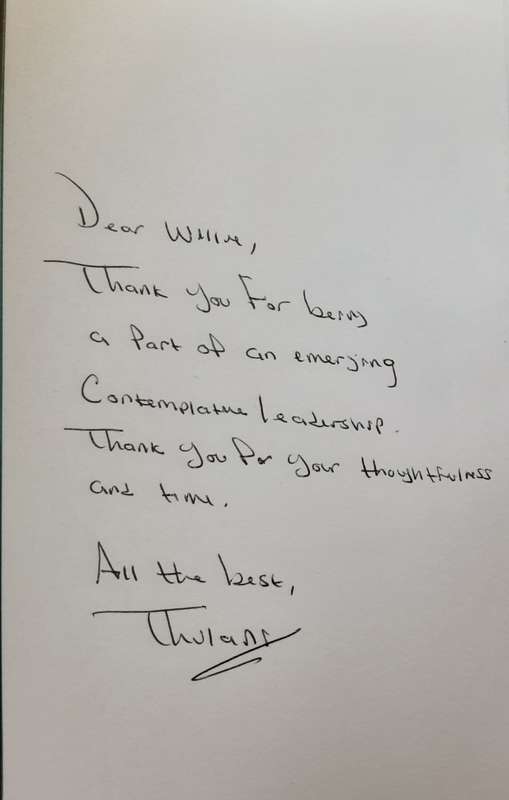 Dear Willie,
Thank you For being
a part of an emerging
Contemplative leadership.
Thank you for your thoughtfulness
and time.
All the best,
Thulani